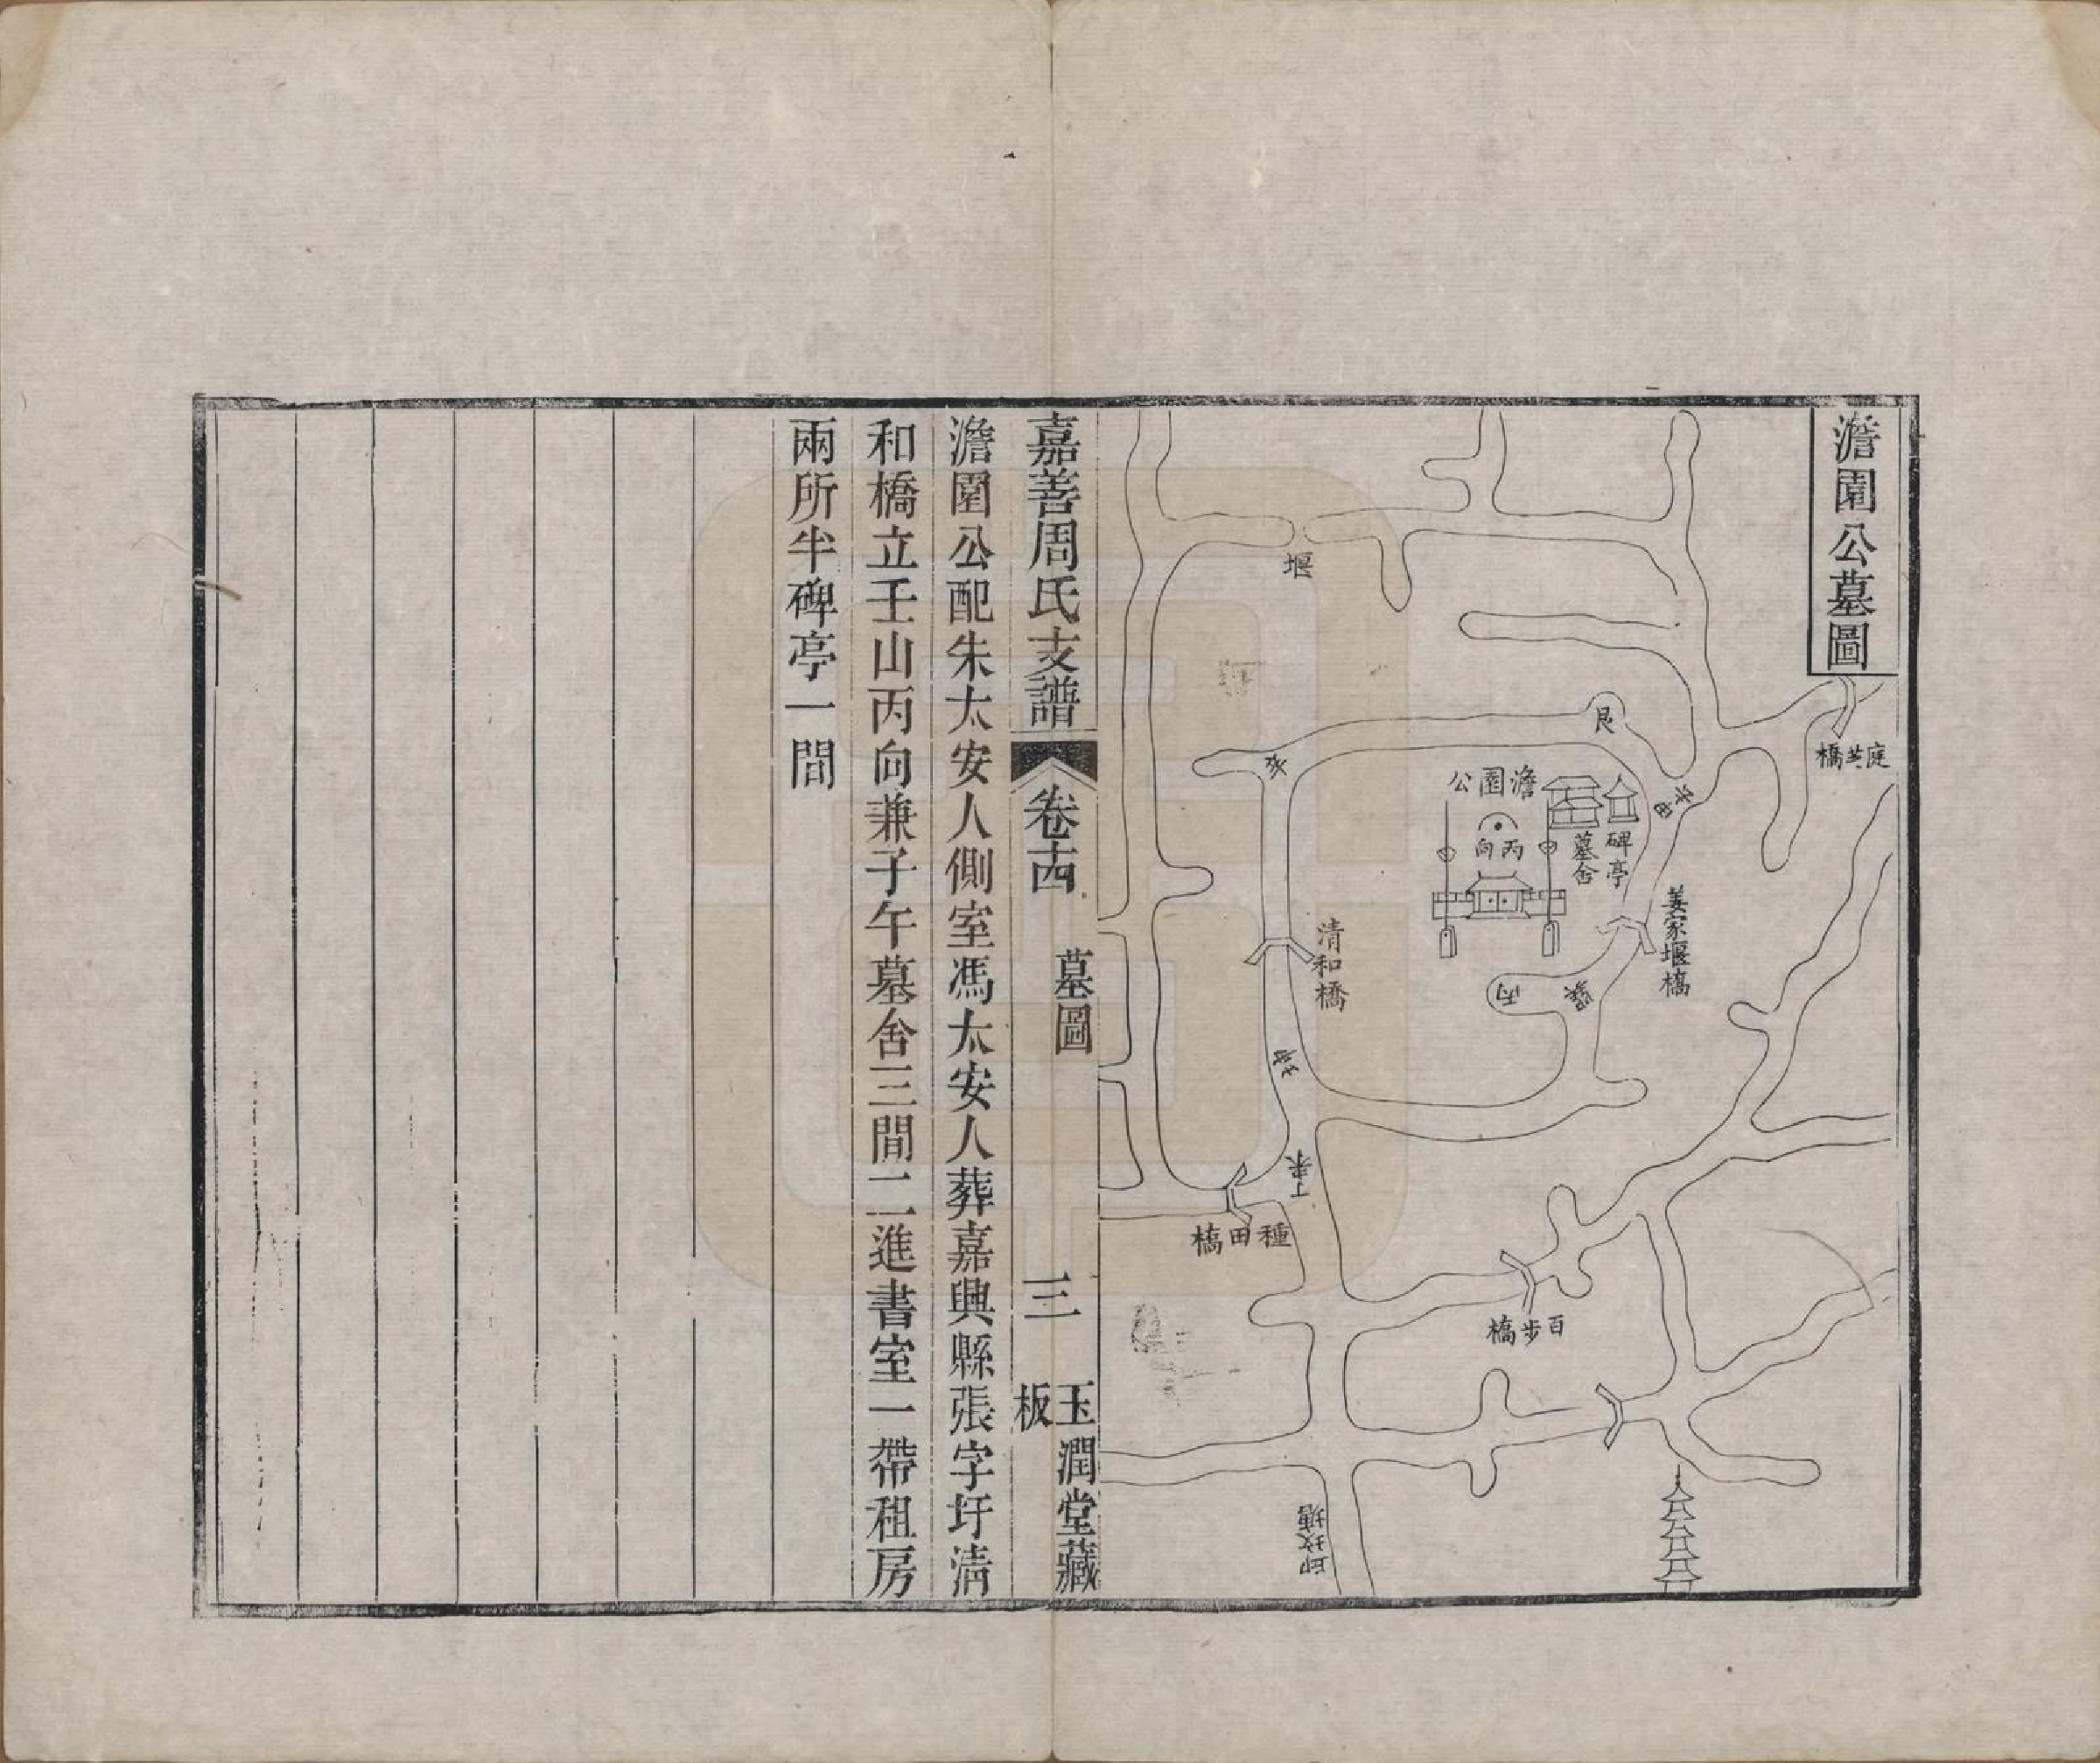 澹園公墓圖
庭芝橋
堰
艮
亥
澹園公
丙向
碑亭
墓舍
姜家堰橋
清和橋
丙
丁未
種田橋
百步橋
邱坟塘
嘉善周氏支譜
卷十四
墓圖
三
玉潤堂藏
板
澹園公配朱太安人側室馮太安人葬嘉興縣張字圩清
和橋立壬山丙向兼子午墓舍三間二進書室一帶租房
兩所半碑亭一間